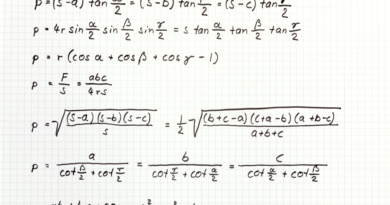 ρ = (s-a) tan α/2 = (s-b) tan β/2 = (s-c) tan γ/2
ρ = 4r sin α/2 sin β/2 sin γ/2 = s tan α/2 tan β/2 tan γ/2
ρ = r (cos α + cos β + cos γ - 1)
ρ = F/s = abc/4rs
ρ = √((s-a)(s-b)(s-c)/s) = 1/2 √((b+c-a)(c+a-b)(a+b-c)/a+b+c)
ρ = a/(cot β/2 + cot γ/2) = b/(cot γ/2 + cot α/2) = c/(cot α/2 + cot β/2)